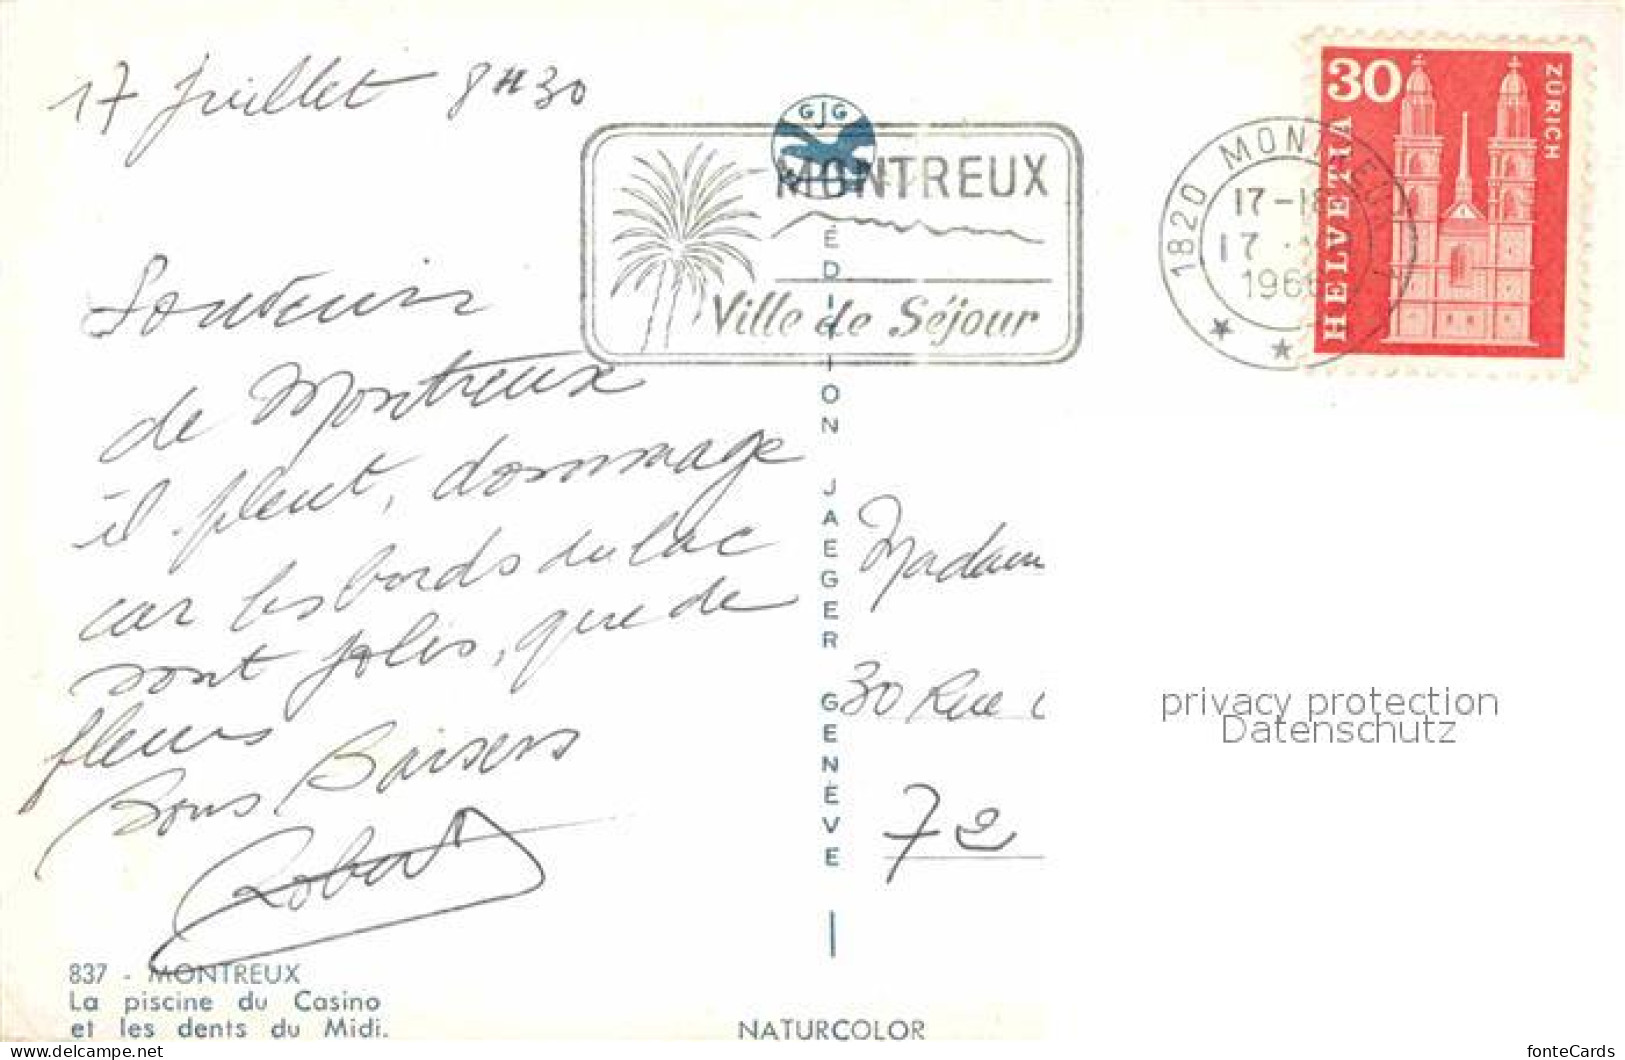 17 juillet 8H30
Souvenir
de Montreux
il pleut, dommage
car les bords du lac
sont jolis, que de
fleurs
Bons Baisers
Robert
837 - MONTREUX
La piscine du Casino
et les dents du Midi.
GJG
MONTREUX
Ville de Séjour
ÉDITION JAEGER GENÈVE
NATURCOLOR
1820 MONTREUX 1
17-18
17
196
30
HELVETIA
ZÜRICH
Madam
30 Rue
72
privacy protection
Datenschutz
www.delcampe.net
fonteCards